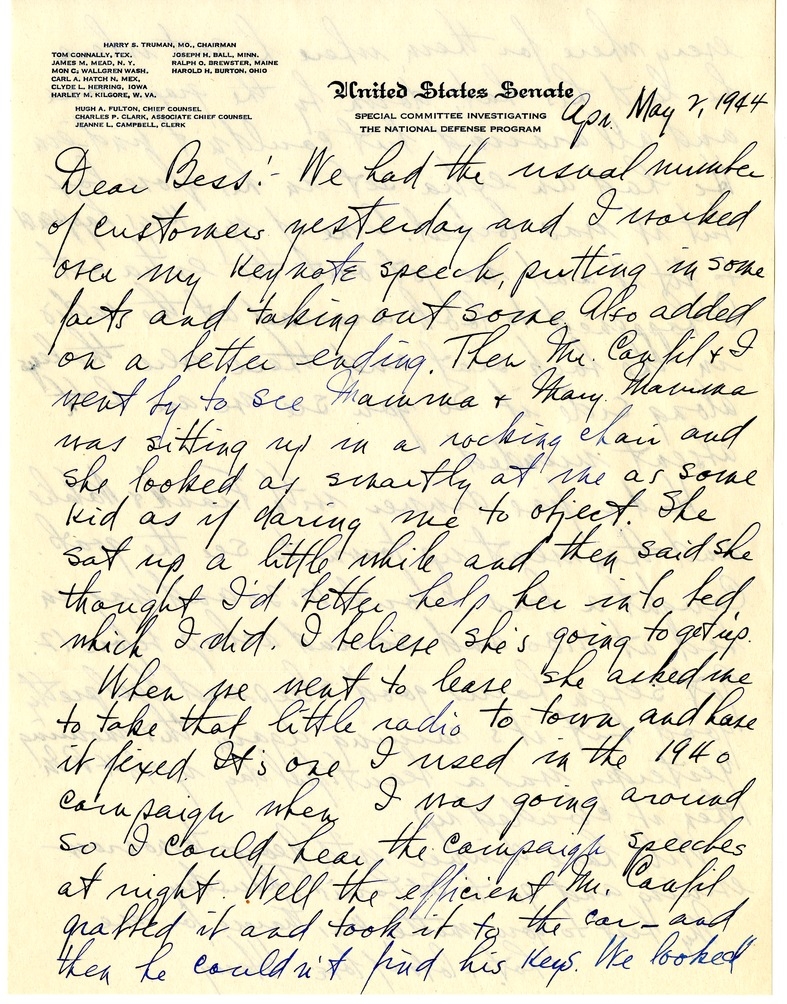 HARRY S. TRUMAN, MO., CHAIRMAN
TOM CONNALLY, TEX. JOSEPH H. BALL, MINN.
JAMES M. MEAD, N. Y. RALPH O. BREWSTER, MAINE
MON C. WALLGREN WASH. HAROLD H. BURTON, OHIO
CARL A. HATCH N, MEX.
CLYDE L. HERRING, IOWA
HARLEY M. KILGORE, W. VA.
HUGH A. FULTON, CHIEF COUNSEL
CHARLES P. CLARK, ASSOCIATE CHIEF COUNSEL
JEANNE L. CAMPBELL, CLERK
United States Senate
SPECIAL COMMITTEE INVESTIGATING
THE NATIONAL DEFENSE PROGRAM
Apr. May 2, 1944
Dear Bess:- We had the usual number
of customers yesterday and I worked
over my Keynote speech, putting in some
facts and taking out some. Also added
on a better ending. Then Mr. Canfil & I
went by to see Mamma & Mary. Mamma
was sitting up in a rocking chair and
she looked as smartly at me as some
kid as if daring me to object. She
sat up a little while and then said she
thought I'd better help her into bed,
which I did. I believe she's going to get up.
When we went to leave she asked me
to take that little radio to town and have
it fixed. It's one I used in the 1940
campaign when I was going around
so I could hear the campaign speeches
at night. Well the efficient Mr. Canfil
grabbed it and took it to the car - and
then he couldn't find his keys. We looked